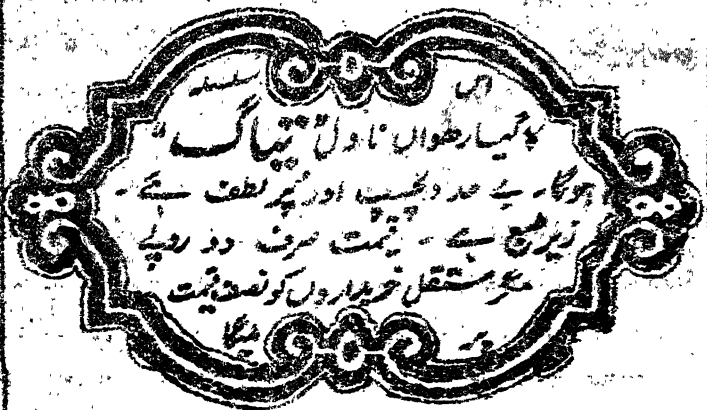 اس سلسلہ
کا گیارھواں ناول "تیاگ"
ہوگا۔ بے حد دلچسپ اور پُر لطف ہے۔
زیر طبع ہے۔ قیمت صرف دو روپے
مگر مستقل خریداروں کو نصف قیمت
پر ملیگا